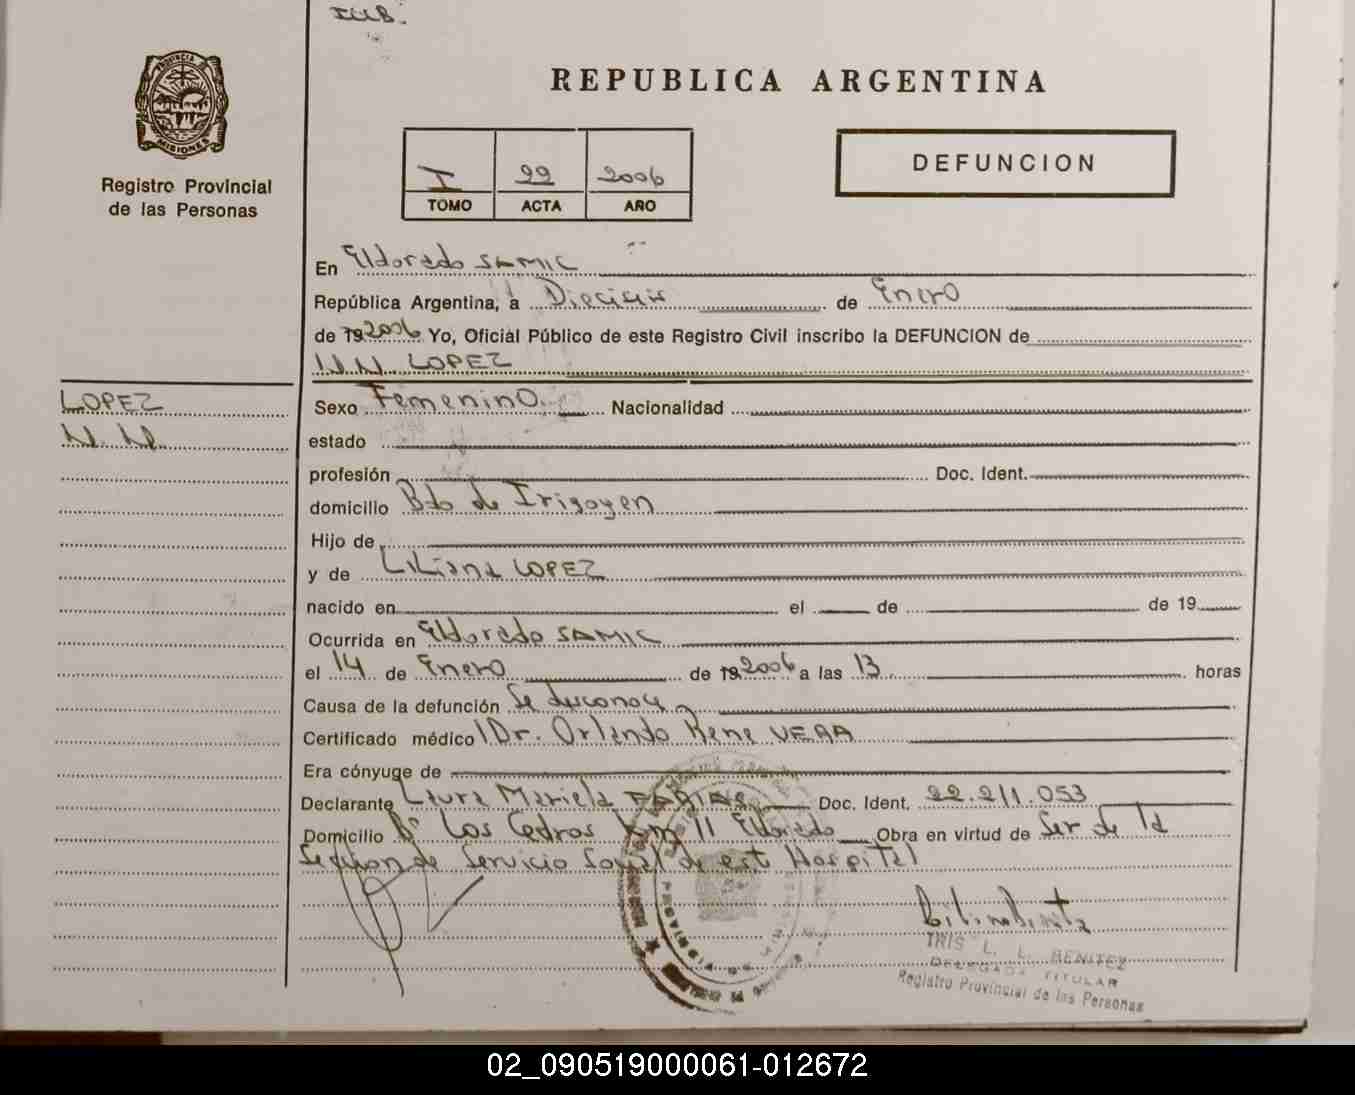 REPUBLICA ARGENTINA
PROVINCIA DE
MISIONES
Registro Provincial
de las Personas
I 22 2006
TOMO ACTA AÑO
DEFUNCION
En Eldorado SAMIC
República Argentina, a Dieciseis de Enero
de 19 2006 Yo, Oficial Público de este Registro Civil inscribo la DEFUNCION de
N.N. LOPEZ
LOPEZ
N.N.
Sexo Femenino Nacionalidad
estado
profesión Doc. Ident.
domicilio Bdo de Irigoyen
Hijo de
y de Liliana LOPEZ
nacido en el de de 19
Ocurrida en Eldorado SAMIC
el 14 de Enero de 19 2006 a las 13 horas
Causa de la defunción Se desconoce
Certificado médico Dr. Orlando Rene VERA
Era cónyuge de
Declarante Laura Mariela FARIAS Doc. Ident. 22.211.053
Domicilio B° Los Cedros km 11 Eldorado Obra en virtud de Ser de la
Seccion de Servicio Social de est Hospital
IRIS L. L. BENITEZ
DELEGADA TITULAR
Registro Provincial de las Personas
02_090519000061-012672